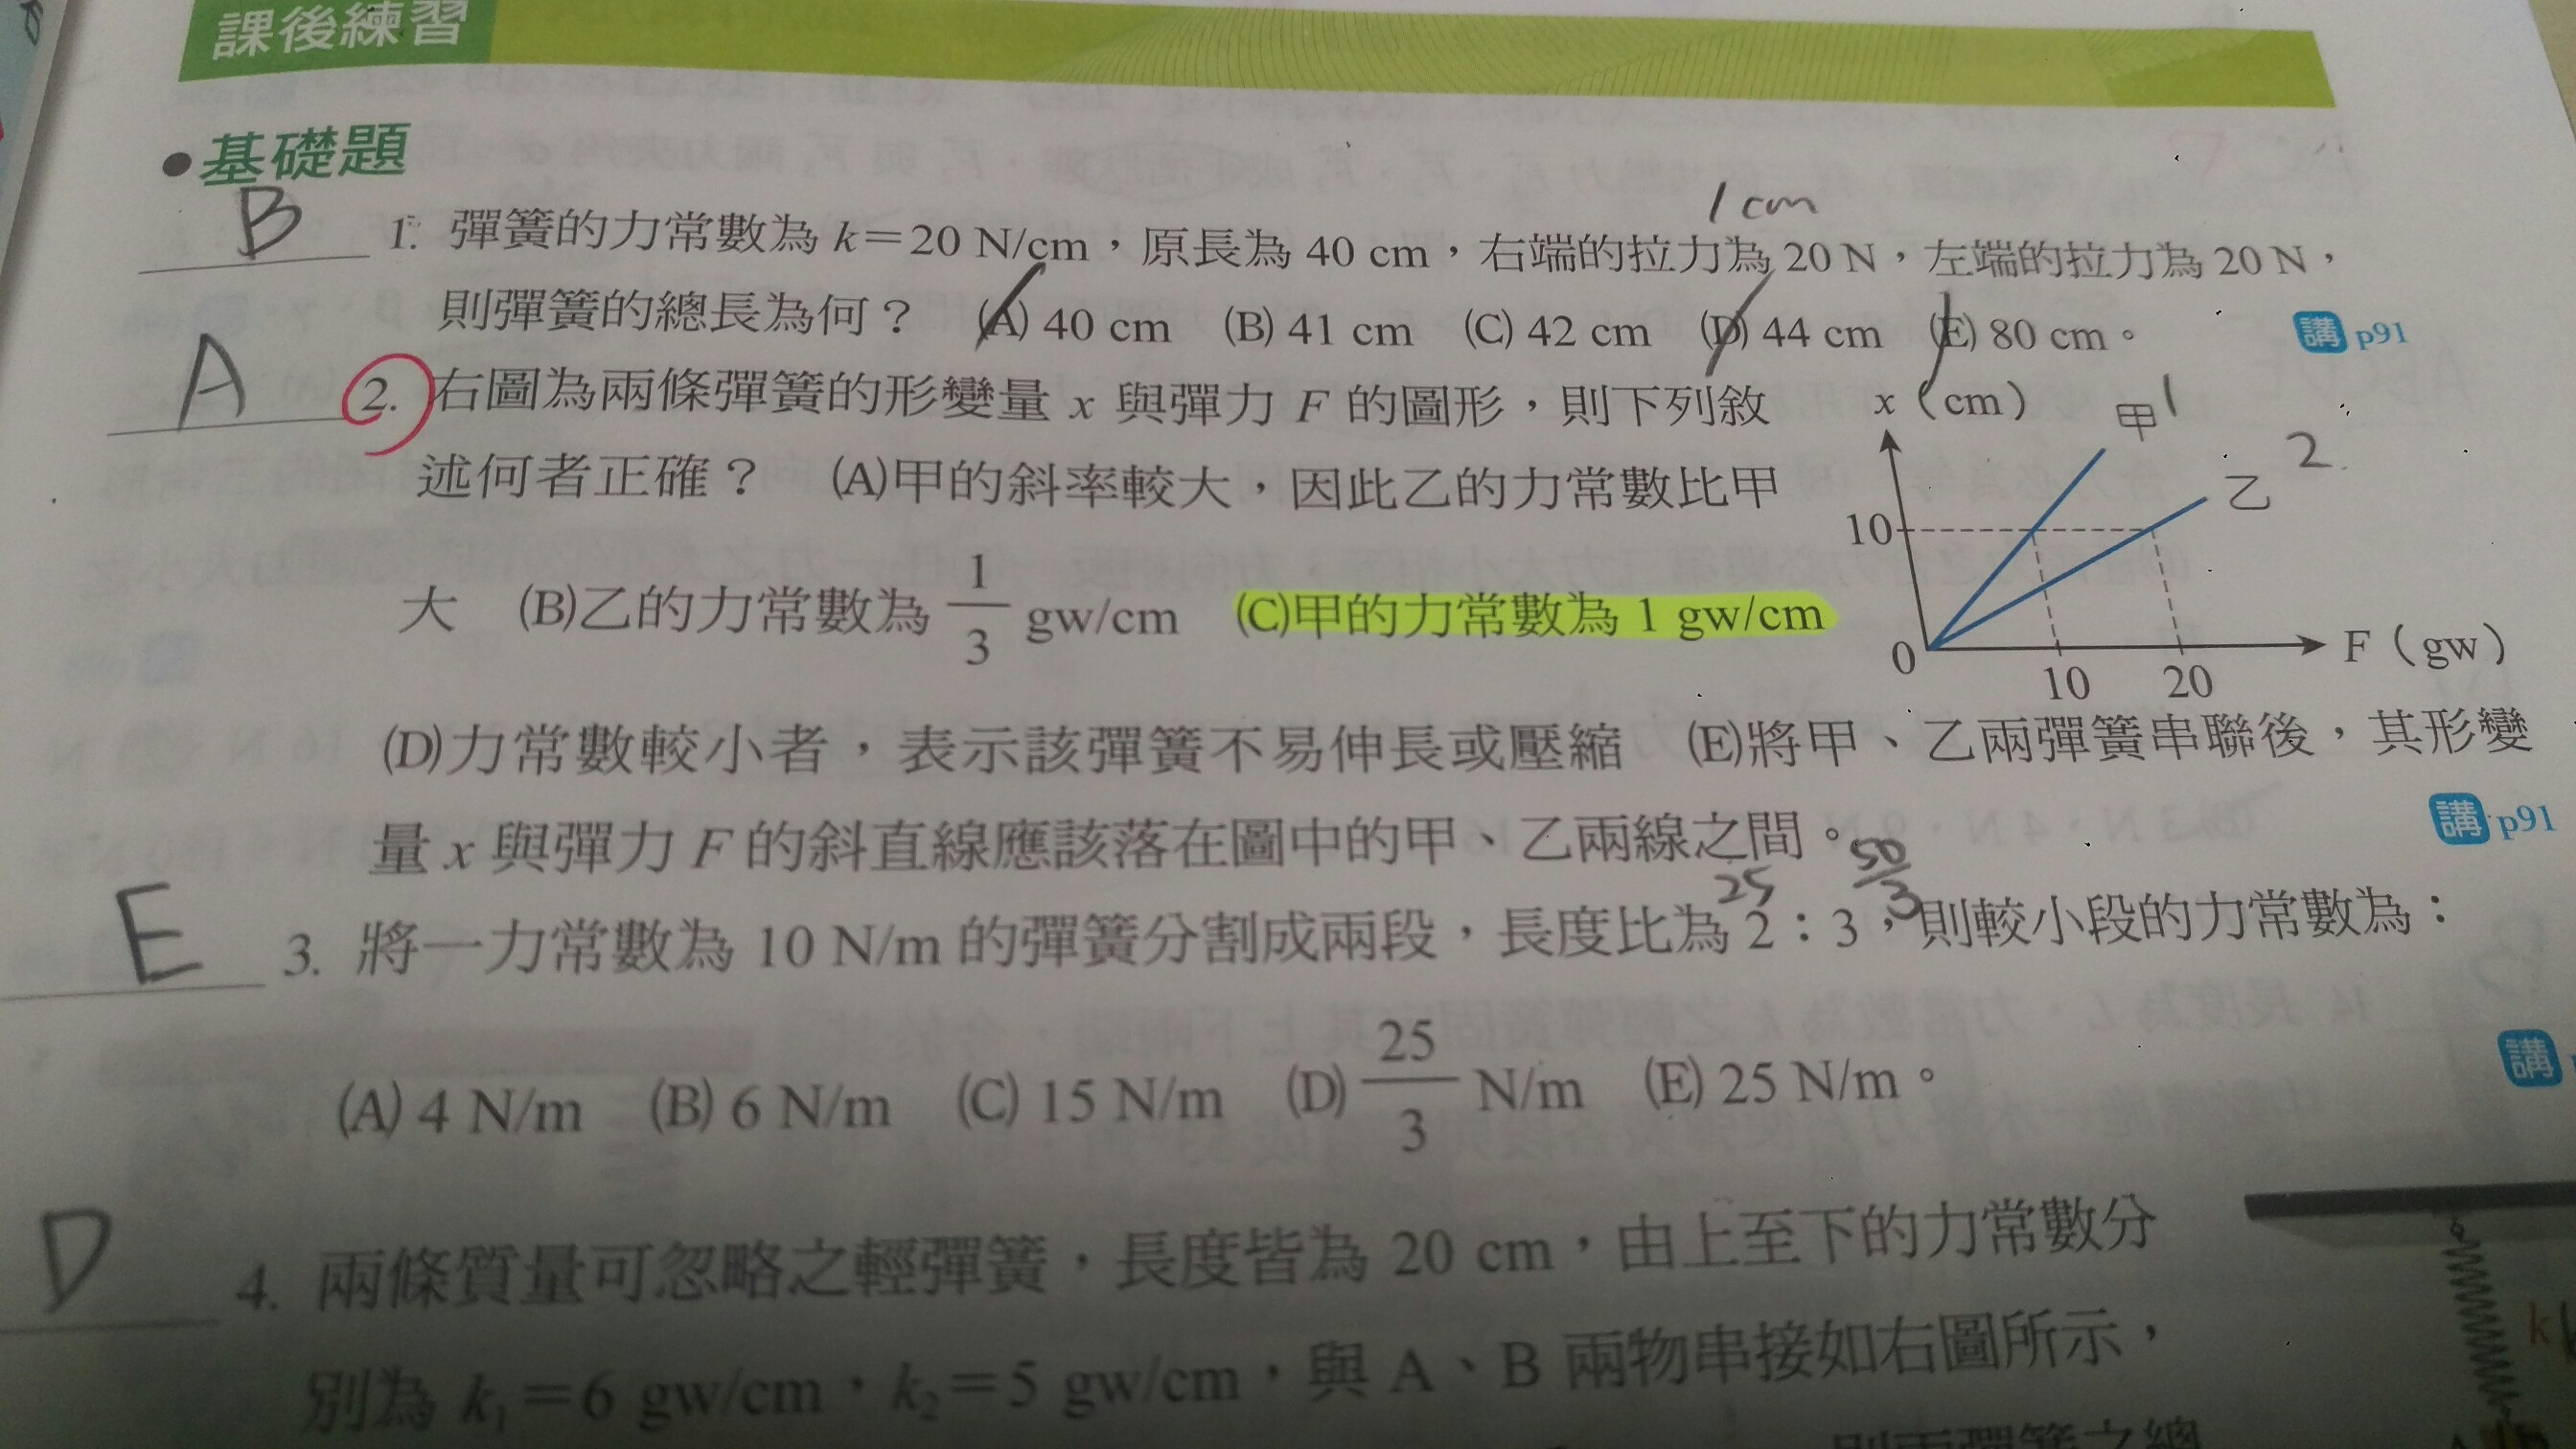 課後練習
•基礎題
B 1. 彈簧的力常數為 k=20 N/cm，原長為 40 cm，右端的拉力為 20 N，左端的拉力為 20 N，
1 cm
則彈簧的總長為何？ (A) 40 cm (B) 41 cm (C) 42 cm (D) 44 cm (E) 80 cm。 講 p91
A 2. 右圖為兩條彈簧的形變量 x 與彈力 F 的圖形，則下列敘
述何者正確？ (A)甲的斜率較大，因此乙的力常數比甲
大 (B)乙的力常數為 1/3 gw/cm (C)甲的力常數為 1 gw/cm
x（cm）
甲 1
乙 2
10
0
10 20
F（gw）
(D)力常數較小者，表示該彈簧不易伸長或壓縮 (E)將甲、乙兩彈簧串聯後，其形變
量 x 與彈力 F 的斜直線應該落在圖中的甲、乙兩線之間。 講 p91
25 50/3
E 3. 將一力常數為 10 N/m 的彈簧分割成兩段，長度比為 2：3，則較小段的力常數為：
(A) 4 N/m (B) 6 N/m (C) 15 N/m (D) 25/3 N/m (E) 25 N/m。 講
D 4. 兩條質量可忽略之輕彈簧，長度皆為 20 cm，由上至下的力常數分
別為 k₁=6 gw/cm，k₂=5 gw/cm，與 A、B 兩物串接如右圖所示，
k
則兩彈簧之總